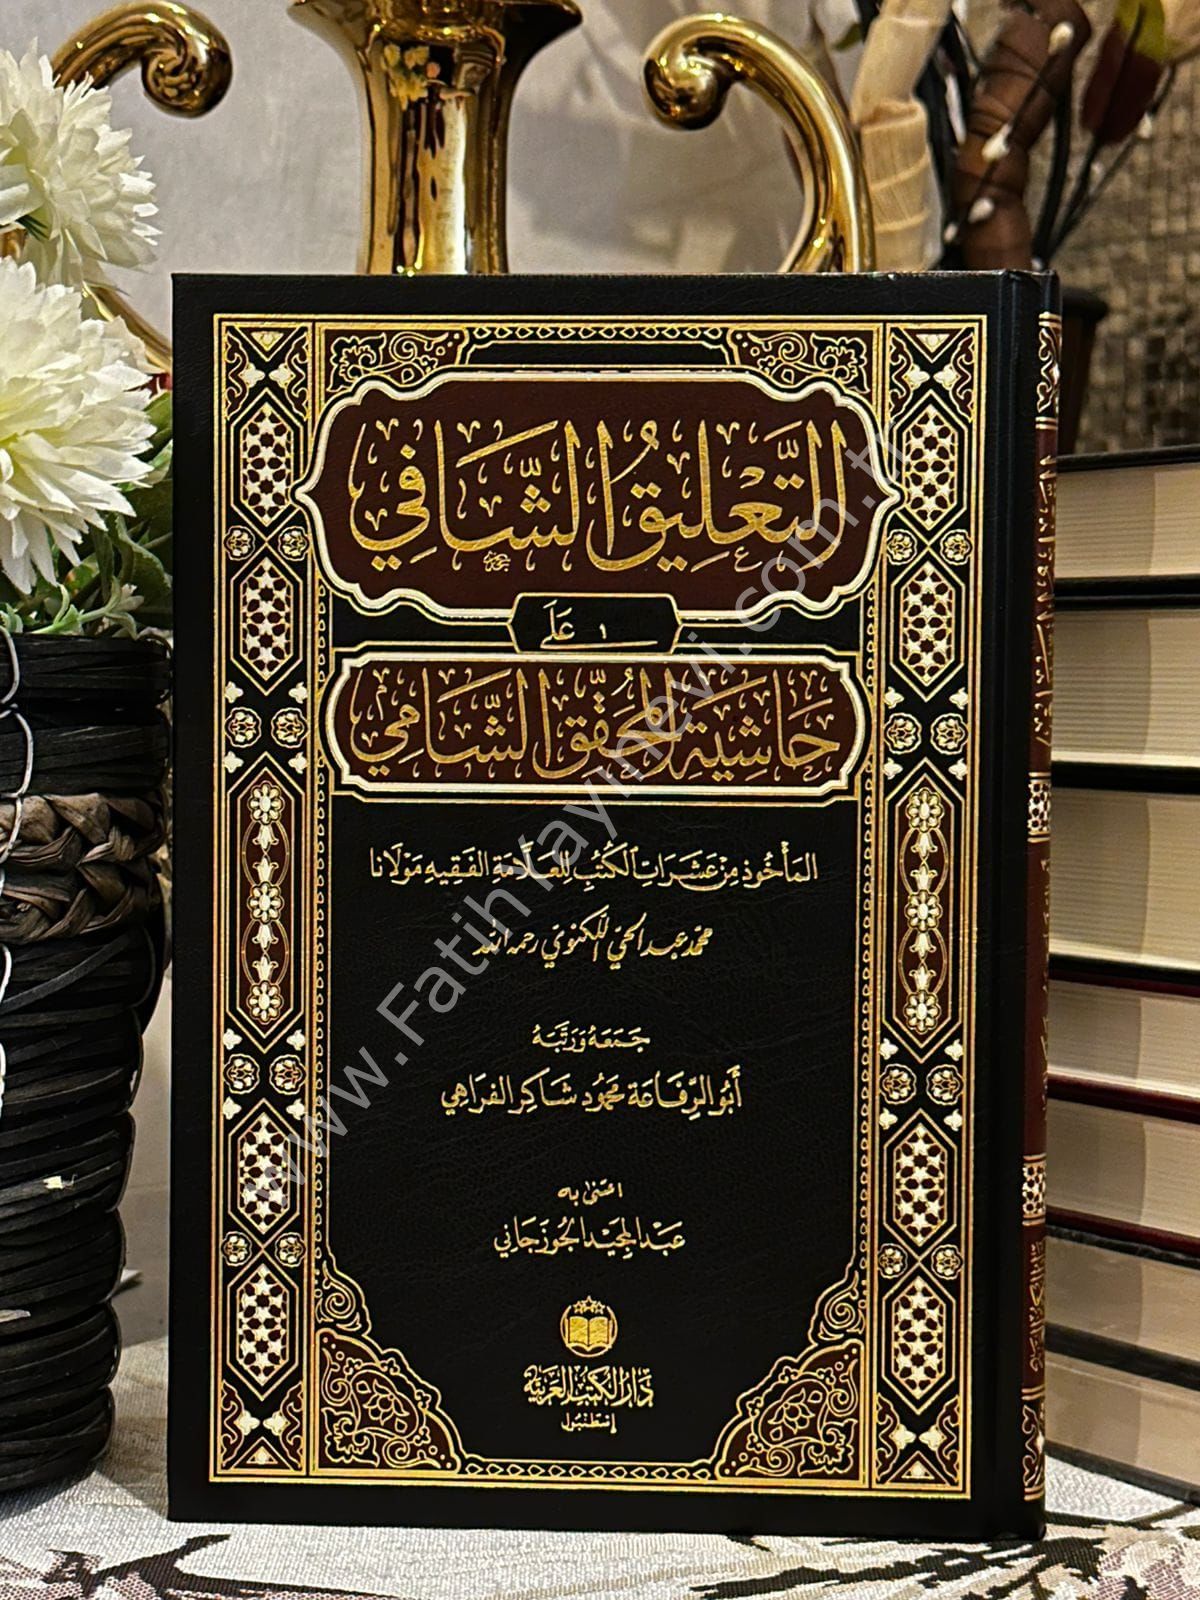 التَّعْلِيقُ الشَّافِي
عَلَى
حَاشِيَةِ الْمُحَقِّقِ الشَّامِي
المَأْخُوذ مِنْ عَشَرَاتِ الكُتُبِ لِلعَلَّامَةِ الفَقِيهِ مَوْلَانَا
محمّد عبد الحيّ اللكنوي رحمه الله
جَمَعَهُ وَرَتَّبَهُ
أَبُو الرِّفَاعَة مَحمُود شَاكِر الفَرَاهِي
اعتنى به
عَبْد المَجِيد الجُوزجَانِي
دَارُ الكُتُبِ العَرَبِيَّة
إسطنبول
www.FatihYayinevi.com.tr